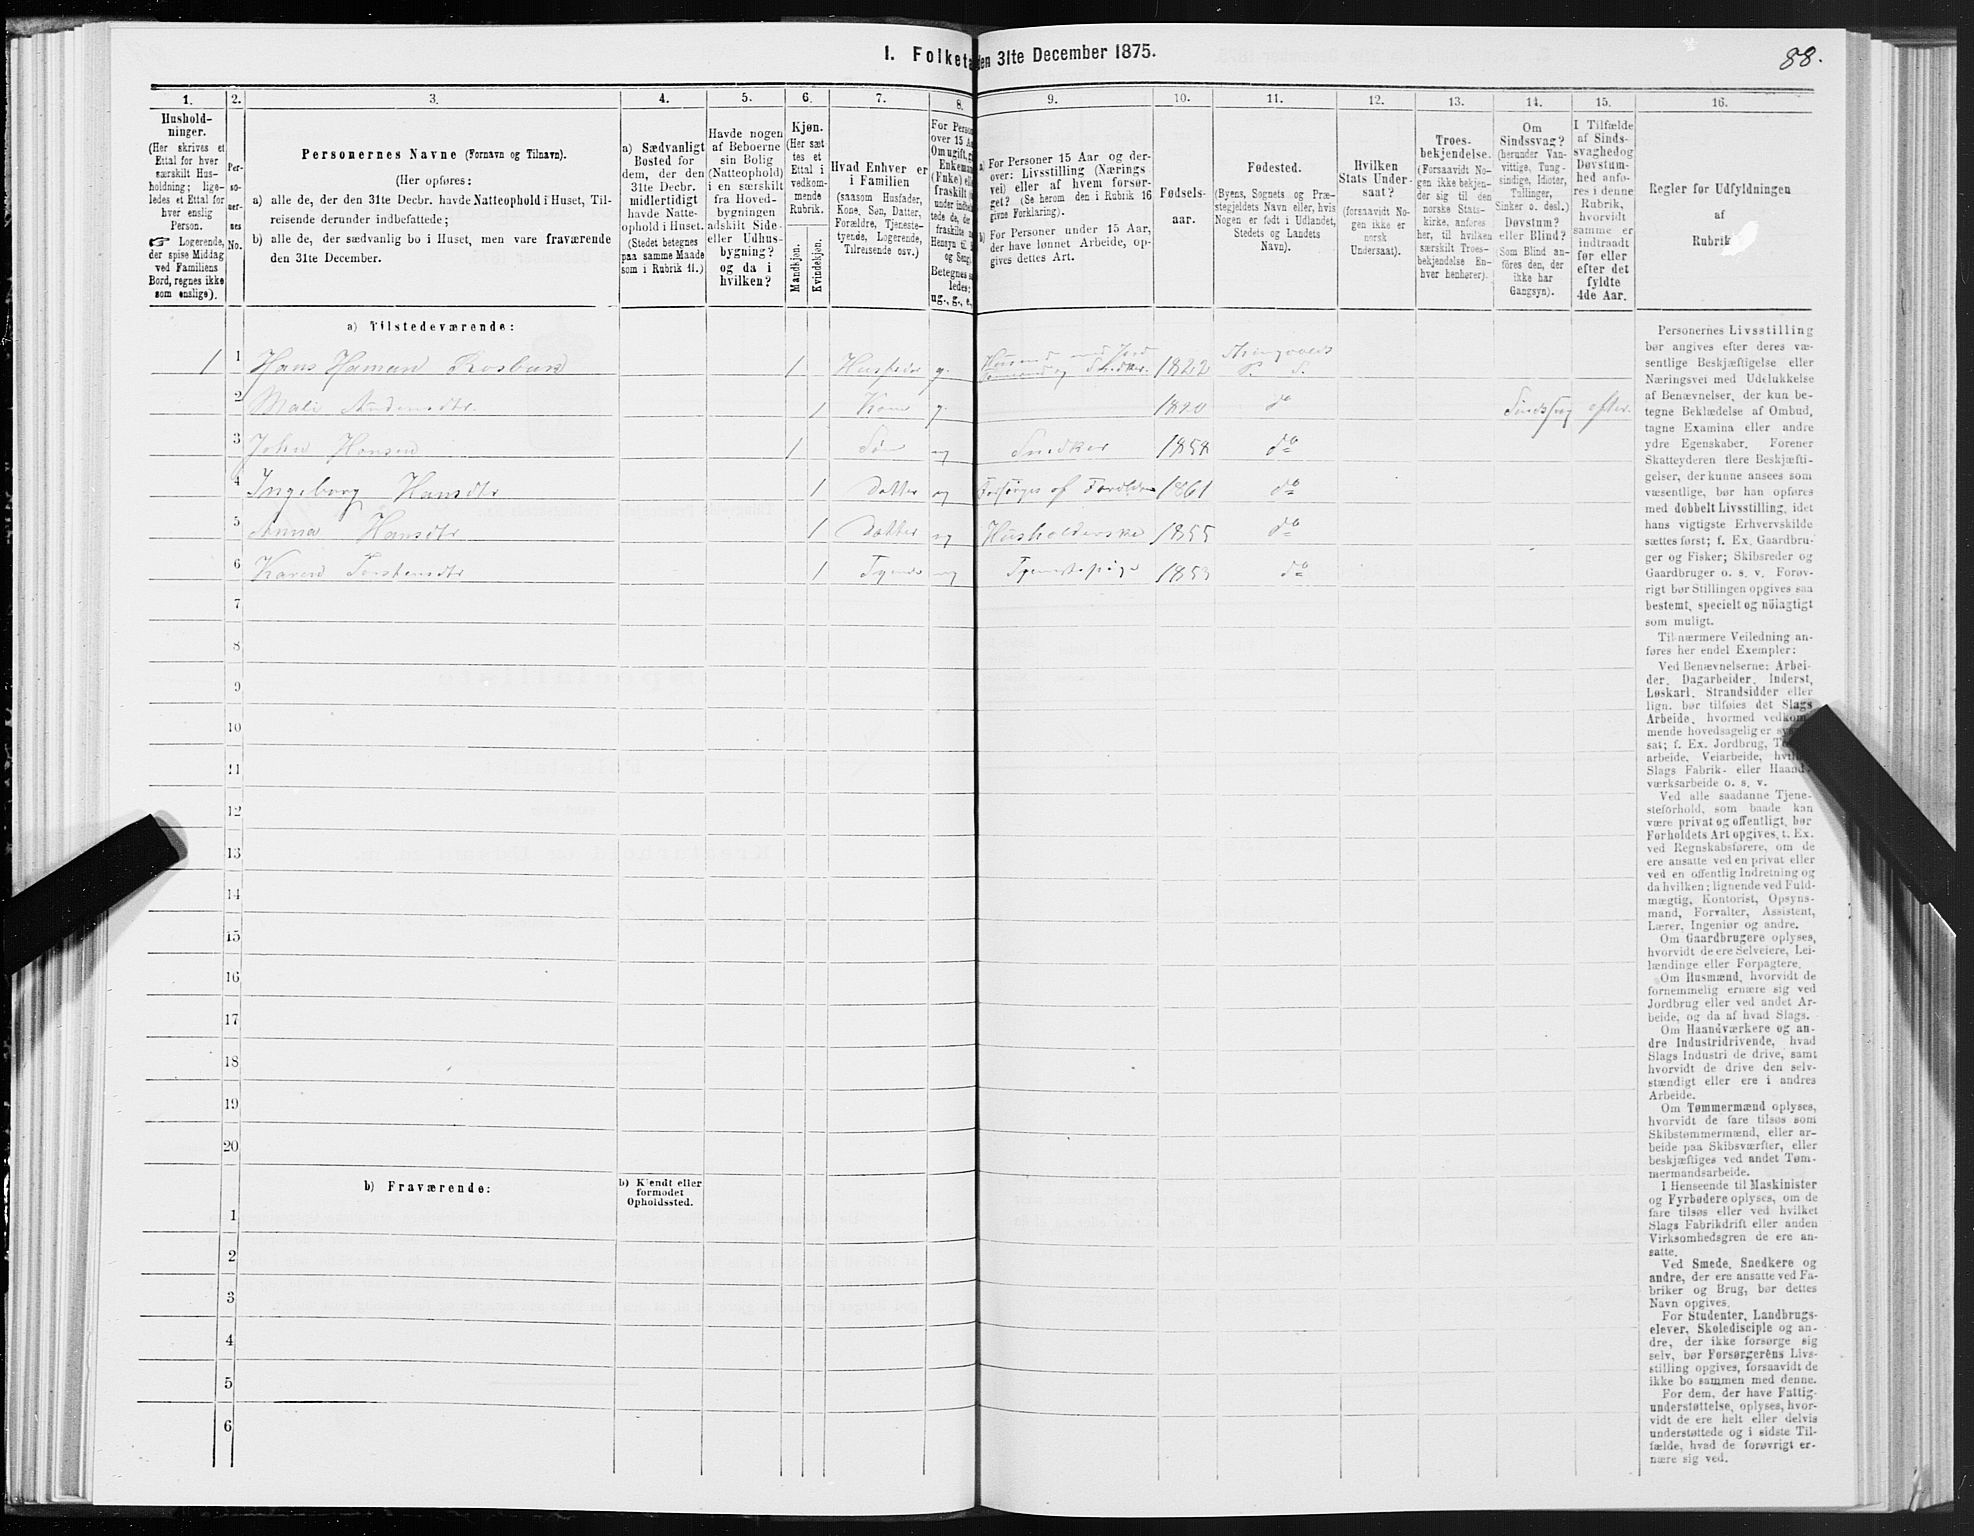 I. Folketa
den 31te December 1875.
88.
1.
2.
3.
4.
5.
6.
7.
8.
9.
10.
11.
12.
13.
14.
15.
16.
Hushold-
ninger.
(Her skrives et
Ettal for hver
særskilt Hus-
holdning; lige-
ledes et Ettal for
hver enslig
Person.
☞ Logerende,
der spise Middag
ved Familiens
Bord, regnes ikke
som enslige).
Per-
so-
ner-
nes
No.
Personernes Navne (Fornavn og Tilnavn).
(Her opføres:
a) alle de, der den 31te Decbr. havde Natteophold i Huset, Til-
reisende derunder indbefattede;
b) alle de, der sædvanlig bo i Huset, men vare fraværende
den 31te December.
a) Sædvanligt
Bosted for
dem, der den
31te Decbr.
midlertidigt
havde Natte-
ophold i Huset.
(Stedet betegnes
paa samme Maade
som i Rubrik 11.)
Havde nogen
af Beboerne
sin Bolig
(Natteophold)
i en særskilt
fra Hoved-
bygningen
adskilt Side-
eller Udhus-
bygning?
og da i
hvilken?
Kjøn.
(Her sæt
tes et
Ettal i
vedkom-
mende
Rubrik.
Mandkjøn.
Kvindekjøn.
Hvad Enhver er
i Familien
(saasom Husfader,
Kone, Søn, Datter,
Forældre, Tjeneste-
tyende, Logerende,
Tilreisende osv.)
For Person
over 15 Aa
Om ugift, g
Enkeman
(Enke) ell
fraskilt (
under indbe
tede de, de
fraskilte
Hensyn til
og Seng
Betegnes s
ledes:
ug., g., e.,
a) For Personer 15 Aar og der-
over: Livsstilling (Nærings
vei) eller af hvem forsør-
get? (Se herom den i Rubrik 16
givne Forklaring).
b) For Personer under 15 Aar,
der have lønnet Arbeide, op-
gives dettes Art.
Fødsels-
aar.
Fødested.
(Byens, Sognets og Præ-
stegjeldets Navn eller, hvis
Nogen er født i Udlandet,
Stedets og Landets
Navn).
Hvilken
Stats Under-
saat?
(forsaavidt No-
gen ikke er
norsk
Undersaat).
Troes-
bekjendelse.
(Forsaavidt No-
gen ikke bekjen-
der sig til den
norske Stats-
kirke, anføres
her, til hvilken
særskilt Troes-
bekjendelse En-
hver henhører).
Om
Sindssvag?
(herunder Van-
vittige, Tung-
sindige, Idioter,
Tullinger,
Sinker o. desl.)
Døvstum?
eller Blind?
(Som Blind an-
føres den, der
ikke har
Gangsyn).
I Tilfælde
af Sinds-
svaghed og
Døvstum-
hed anfø-
res i denne
Rubrik,
hvorvidt
samme er
indtraadt
før eller
efter det
fyldte
4de Aar.
Regler for Udfyldningen
af
Rubrik
a) Tilstedeværende:
1 1 Hans Haman 1 Husfader g. 1822
2 Mali 1 Kone g. 1820 do Sindssvag efter.
3 John Hansen 1 Søn ug Snedker 1858 do
4 Ingeborg Hansdtr 1 Datter ug Forsørges af Forældre 1861 do
5 Anna Hansdtr 1 Datter ug Husholderske 1855 do
6 Karen 1 Tyende ug Tjenestepige 1853 do
7
8
9
10
11
12
13
14
15
16
17
18
19
20
b) Fraværende:
b) Kjendt eller
formodet
Opholdssted.
1
2
3
4
5
6
Personernes Livsstilling
bør angives efter deres væ-
sentlige Beskjæftigelse eller
Næringsvei med Udelukkelse
af Benævnelser, der kun be-
tegne Beklædelse af Ombud,
tagne Examina eller andre
ydre Egenskaber. Forener
Skatteyderen flere Beskjæfti-
gelser, der kunne ansees som
væsentlige, bør han opføres
med dobbelt Livsstilling, idet
hans vigtigste Erhvervskilde
sættes først; f. Ex. Gaardbru-
ger og Fisker; Skibsreder og
Gaardbruger o. s. v. Forøv-
rigt bør Stillingen opgives saa
bestemt, specielt og nöiagtigt
som muligt.
Til nærmere Veiledning an-
føres her endel Exempler:
Ved Benævnelserne: Arbei-
der, Dagarbeider, Inderst,
Løskarl, Strandsidder eller
lign. bør tilføies det Slags
Arbeide, hvormed vedkom-
mende hovedsagelig er sy
sat; f. Ex. Jordbrug, T
arbeide, Veiarbeide, hvil
Slags Fabrik- eller Haand-
værksarbeide o. s. v.
Ved alle saadanne Tjene-
steforhold, som baade kan
være privat og offentligt, bør
Forholdets Art opgives, t. Ex.
ved Regnskabsførere, om de
ere ansatte ved en privat eller
ved en offentlig Indretning og
da hvilken; lignende ved Fuld-
mægtig, Kontorist, Opsyns-
mand, Forvalter, Assistent,
Lærer, Ingeniør og andre.
Om Gaardbrugere oplyses,
hvorvidt de ere Selveiere, Lei-
lændinge eller Forpagtere.
Om Husmænd, hvorvidt de
fornemmelig ernære sig ved
Jordbrug eller ved andet Ar-
beide, og da af hvad Slags.
Om Haandværkere og an-
dre Industridrivende, hvad
Slags Industri de drive, samt
hvorvidt de drive den selv-
stændigt eller ere i andres
Arbeide.
Om Tømmermænd oplyses,
hvorvidt de fare tilsøs som
Skibstømmermænd, eller ar-
beide paa Skibsværfter, eller
beskjæftiges ved andet Tøm-
mermandsarbeide.
I Henseende til Maskinister
og Fyrbødere oplyses, om de
fare tilsøs eller ved hvilket
Slags Fabrikdrift eller anden
Virksomhedsgren de ere an-
satte.
Ved Smede, Snedkere og
andre, der ere ansatte ved Fa-
briker og Brug, bør dettes
Navn opgives.
For Studenter, Landbrugs-
elever, Skoledisciple og an-
dre, der ikke forsørge sig
selv, bør Forsørgerens Livs-
stilling opgives, forsaavidt de
ikke bo sammen med denne.
For dem, der have Fattig-
understøttelse, oplyses, hvor-
vidt de ere helt eller delvis
understøttede og i sidste Til-
fælde, hvad de forøvrigt er-
nære sig ved.